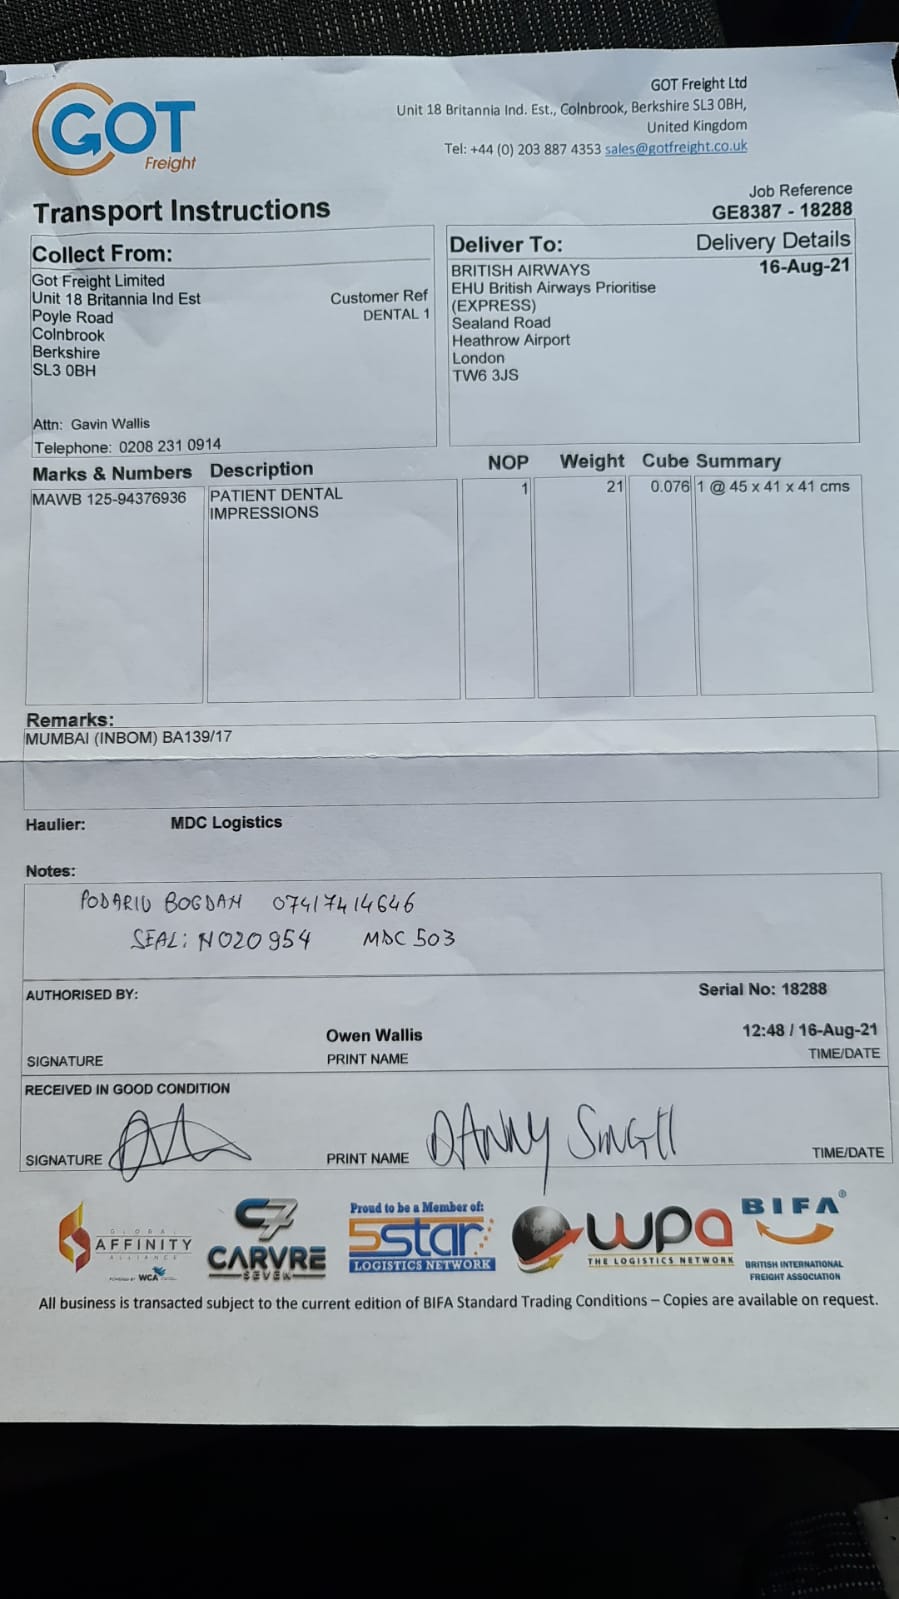 GOT
Freight
GOT Freight Ltd
Unit 18 Britannia Ind. Est., Colnbrook, Berkshire SL3 0BH,
United Kingdom
Tel: +44 (0) 203 887 4353 sales@gotfreight.co.uk
Job Reference
GE8387 - 18288
Transport Instructions
Collect From:
Got Freight Limited
Unit 18 Britannia Ind Est
Poyle Road
Colnbrook
Berkshire
SL3 0BH
Customer Ref
DENTAL 1
Attn: Gavin Wallis
Telephone: 0208 231 0914
Deliver To:
Delivery Details
16-Aug-21
BRITISH AIRWAYS
EHU British Airways Prioritise
(EXPRESS)
Sealand Road
Heathrow Airport
London
TW6 3JS
Marks & Numbers Description NOP Weight Cube Summary
MAWB 125-94376936 PATIENT DENTAL 1 21 0.076 1 @ 45 x 41 x 41 cms
IMPRESSIONS
Remarks:
MUMBAI (INBOM) BA139/17
Haulier: MDC Logistics
Notes:
PODARIU BOGDAN 07417414646
SEAL: N020954 MDC 503
AUTHORISED BY: Serial No: 18288
Owen Wallis 12:48 / 16-Aug-21
SIGNATURE PRINT NAME TIME/DATE
RECEIVED IN GOOD CONDITION
SIGNATURE PRINT NAME DANNY SINGH TIME/DATE
GLOBAL
AFFINITY
ALLIANCE
POWERED BY WCA
C7
CARVRE
SEVEN
Proud to be a Member of:
5star
LOGISTICS NETWORK
wpa
THE LOGISTICS NETWORK
BIFA®
BRITISH INTERNATIONAL
FREIGHT ASSOCIATION
All business is transacted subject to the current edition of BIFA Standard Trading Conditions – Copies are available on request.